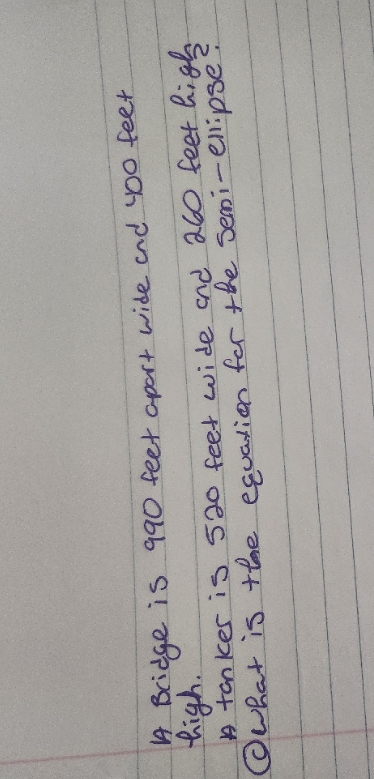 A Bridge is 990 feet apart wide and 400 feet
high.
A tanker is 520 feet wide and 260 feet high
① what is the equation for the semi-ellipse?